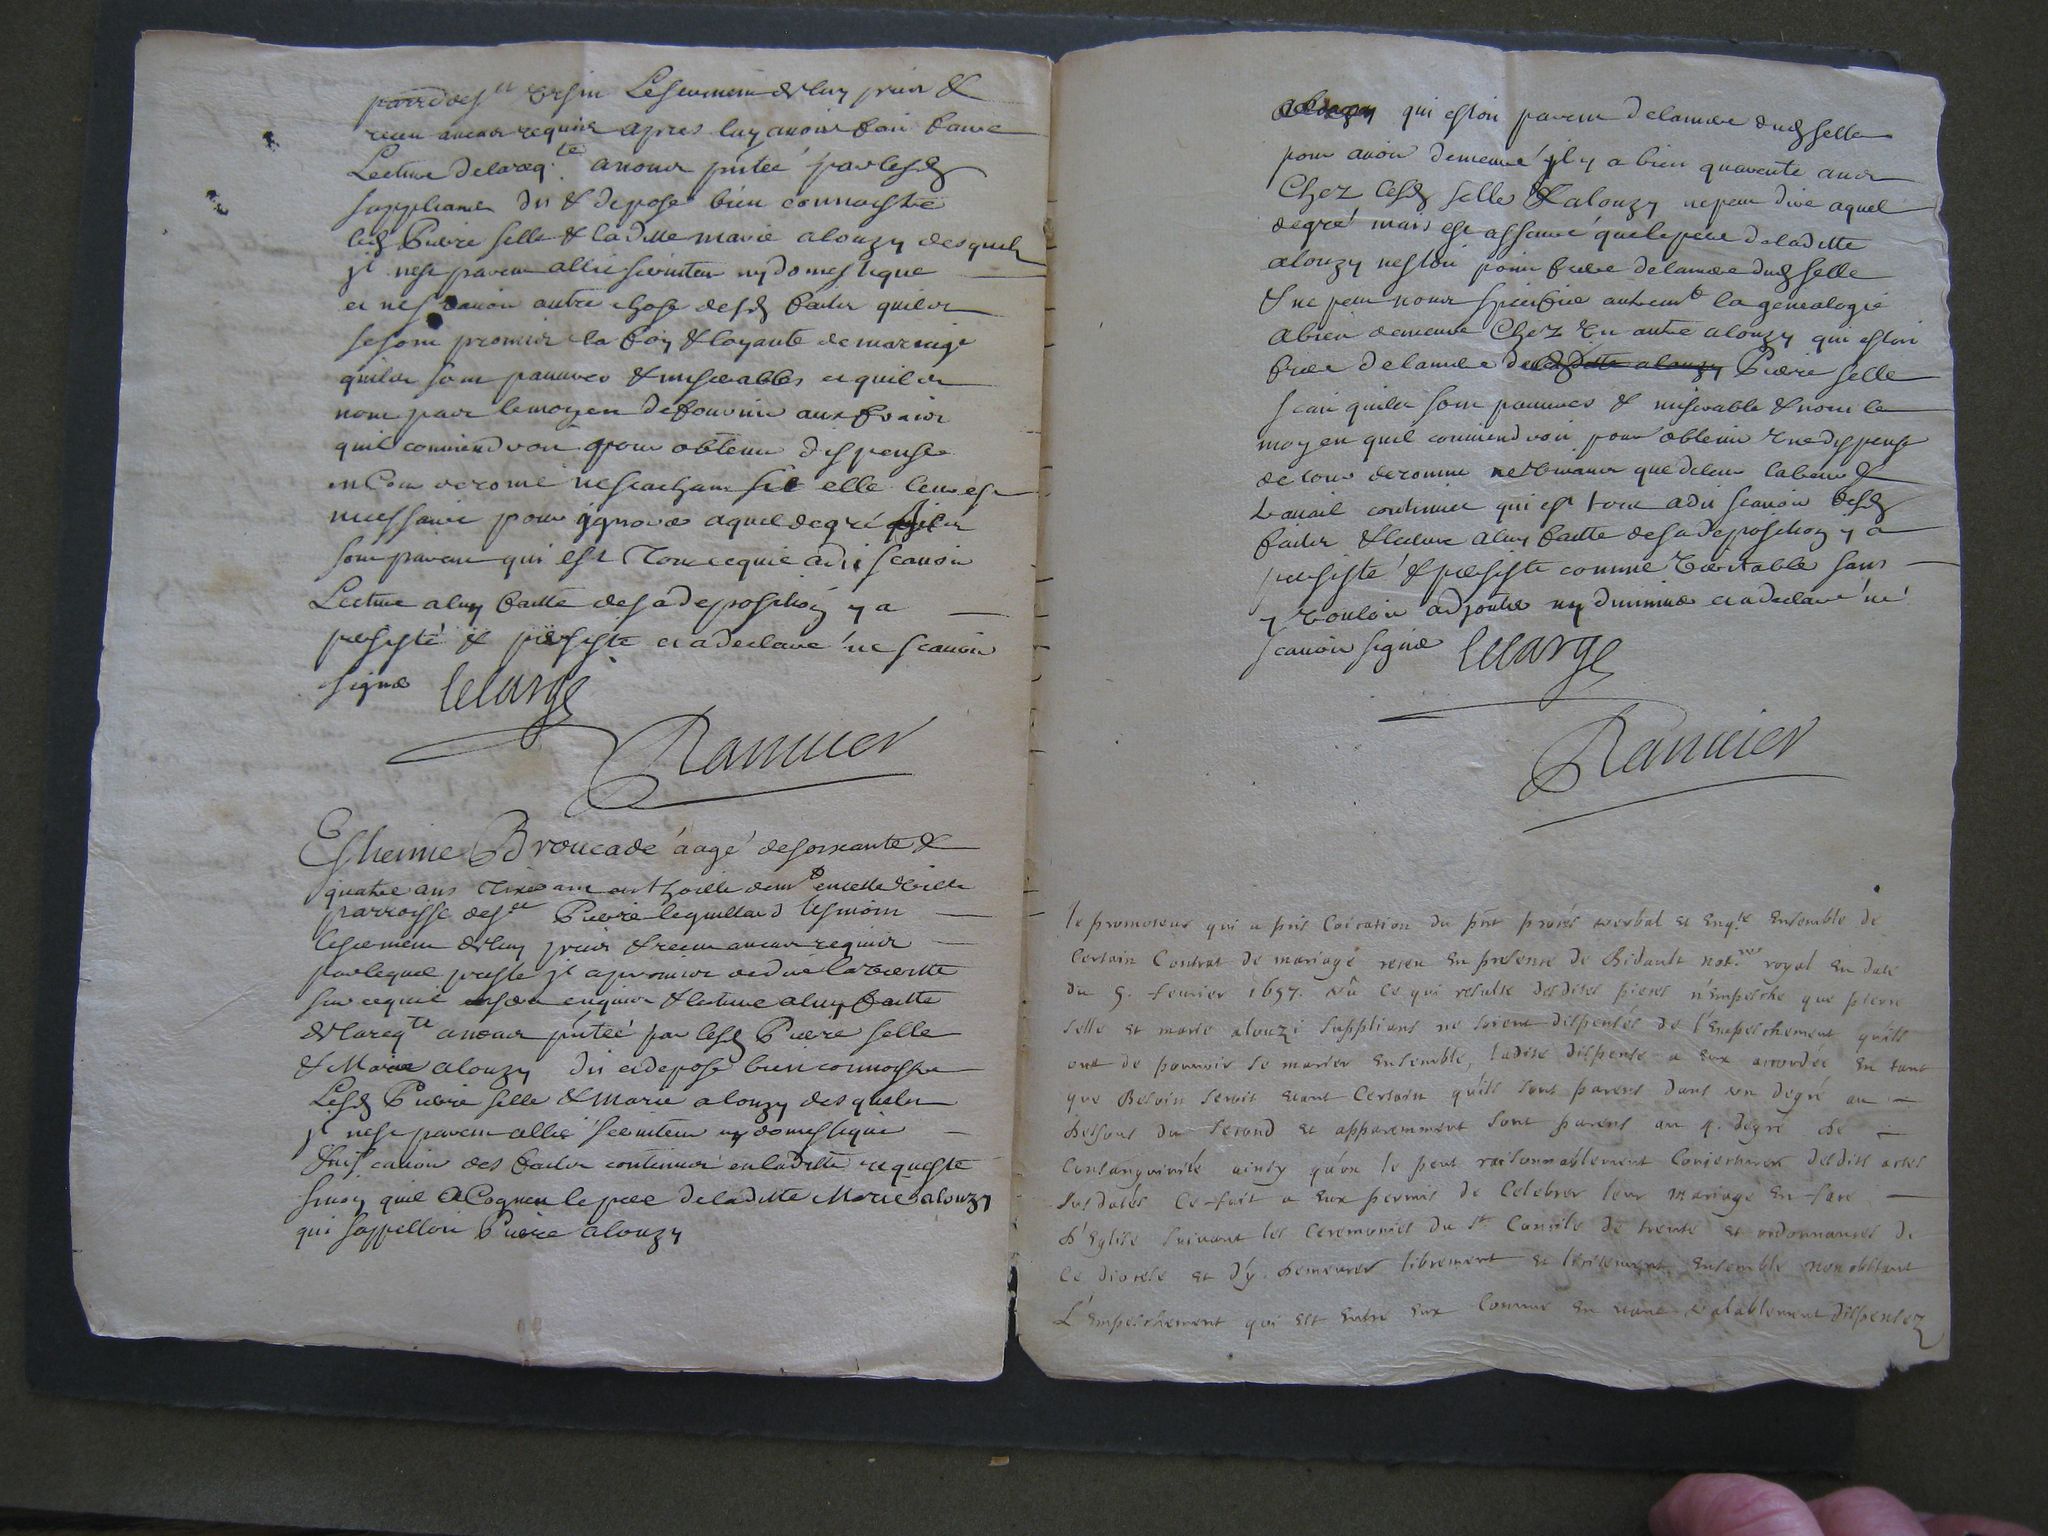 parr de st Ursin Le serment de luy pris &
receu aucas requis apres luy avoir fait faire
Lecture de la req.te a nous pñtée par lesd
supplians dit & depose bien connoistre
led Pierre selle & la ditte marie alouzy desquels
jl nest parent allié serviteur ny domestique
et ne scavoir autre chose desd faits quils
se sont promis la foy & loyauté de mariage
quils sont pauvres & miserables et quils
nont pas le moyen de fournir aux frais
quil conviendroit pour obtenir dispense
en Cour de rome ne scachant si elle leur est
necessaire pour ignorer a quel degré quils
sont parens qui est Tout ce quil a dit scavoir
Lecture a luy faitte de sa deposition y a
persisté & persiste et a declaré ne scavoir
signer lelarge
Rannier
Estienne Broucade áagé de soixante &
quatre ans Tixeran en thoille demt en cette ville
parroisse de st Pierre le guillard tesmoin
le serment de luy pris & receu aucas requis
par lequel presté jl a promis de dire la verité
sur ce quil sera enquis & lecture a luy faitte
de la req.te a nous pñtéé par lesd Pierre selle
& Marie alouzy dit et depose bien connoistre
Lesd Pierre selle & Marie alouzy desquels
jl nest parent allié serviteur ny domestique
& ne scavoir des faits contenus en la ditte requeste
sinon quil a Cogneu le pere de la ditte Marie alouzy
qui sappelloit Pierre alouzy
qui estoit parent de la mere dud selle
pour avoir demeuré jl y a bien quarente ans
Chez lesd selle & alouzy ne peut dire a quel
degré mais est asseuré que le pere de la ditte
alouzy nestoit point frere de la mere dud selle
& ne peut nous specifier autremt la genealogie
a bien demeuré Chez Un autre alouzy qui estoit
frere de la mere de la ditte alouzy Pierre selle
scait quils sont pauvres & miserable & nont le
moyen quil conviendroit pour obtenir Une dispense
de cour de romme ne vivans que de leur labeur &
travail continuel qui est tout a dit scavoir desd
faits & lecture a luy faitte de sa deposition y a
persisté & persiste comme veritable sans
y vouloir adjouter ny diminuer et a declaré ne
scavoir signer lelarge
Rannier
le promoteur qui a pris Coication du pñt procés verbal et Enq.te Ensemble de
Certain Contrat de mariage receu En presence de Bidault not.re royal En date
du 5. fevrier 1697. vû Ce qui resulte desdites pieces n'Empesche que pierre
selle et marie alouzi supplians ne soient dispensés de l'Empeschement qu'ils
ont de pouvoir se marier Ensemble, ladite dispense a Eux accordée En tant
que Besoin seroit etant Certain qu'ils sont parens dans un degré au
dessous du second et apparemment sont parens au 4. degré de
Consanguinité ainsy qu'on le peut raisonnablement Conjecturer desdits actes
susdatés Ce fait a Eux permis de Celebrer leur mariage En face
d'Eglise suivant les Ceremonies du st. Concile de trente et ordonnances de
Ce diocese et d'y demeurer librement et licitement Ensemble nonobstant
L'Empeschement qui est Entre Eux Comme En etant valablement dispensez